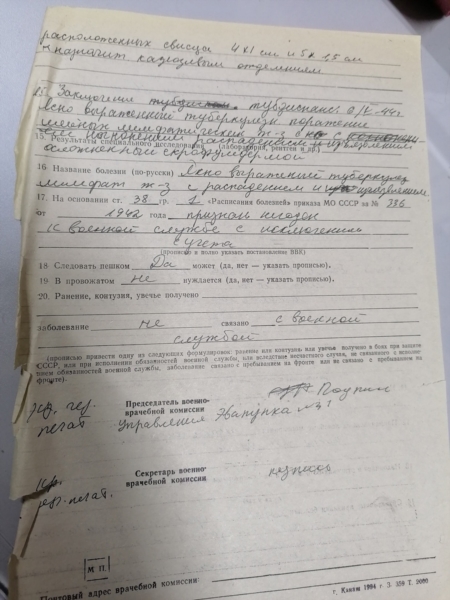 расположенных свищи 4х1 см и 5х 1,5 см
отделяемым
15. Заключение тубдиспанс. 2/V-44г.
Ясно выраженный туберкулез поражение
лимфатических ж-з
15. Результаты специального исследования (лаборатории, рентген и др.)
осложненный скрофулодермой
16. Название болезни (по-русски) Ясно выраженный туберкулез
лимфат ж-з с распадением и изъязвлением
17. На основании ст. 38 гр. 1 «Расписания болезней» приказа МО СССР за № 336
от 1942 года признан негоден
к военной службе с исключением
с учета
(прописью и полно указать постановление ВВК)
18 Следовать пешком Да может (да, нет — указать прописью).
19 В провожатом не нуждается (да, нет — указать прописью).
20. Ранение, контузия, увечье получено
заболевание не связано с военной
службой
(прописью привести одну из следующих формулировок: ранение или контузия или увечье получено в боях при защите
СССР, или при исполнении обязанностей военной службы, или вследствие несчастного случая, не связанного с исполне-
нием обязанностей военной службы, заболевание связано с пребыванием на фронте или не связано с пребыванием на
фронте).
Председатель военно-
врачебной комиссии
Управления Эвакпункта
Секретарь военно-
врачебной комиссии
М П.
Почтовый адрес врачебной комиссии:
г. Канаш 1994 г. З. 559 Т. 2000